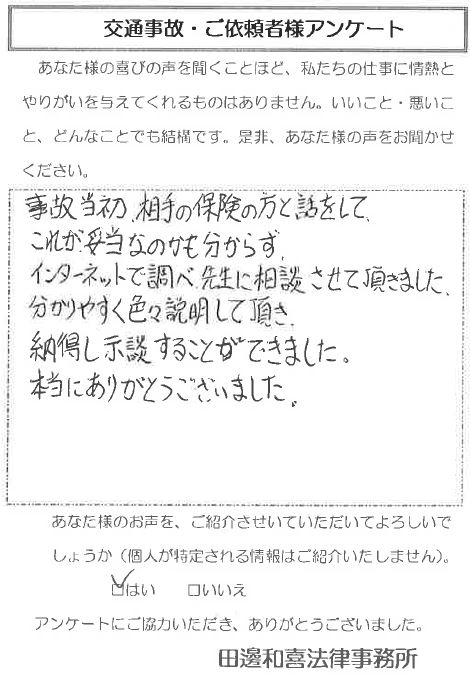 交通事故・ご依頼者様アンケート
あなた様の喜びの声を聞くことほど、私たちの仕事に情熱と
やりがいを与えてくれるものはありません。いいこと・悪いこ
と、どんなことでも結構です。是非、あなた様の声をお聞かせ
ください。
事故当初、相手の保険の方と話をして、
これが妥当なのかも分からず、
インターネットで調べ、先生に相談させて頂きました。
分かりやすく色々説明して頂き、
納得し示談することができました。
本当にありがとうございました。
あなた様のお声を、ご紹介させていただいてよろしいで
しょうか（個人が特定される情報はご紹介いたしません）。
☑はい □いいえ
アンケートにご協力いただき、ありがとうございました。
田邊和喜法律事務所